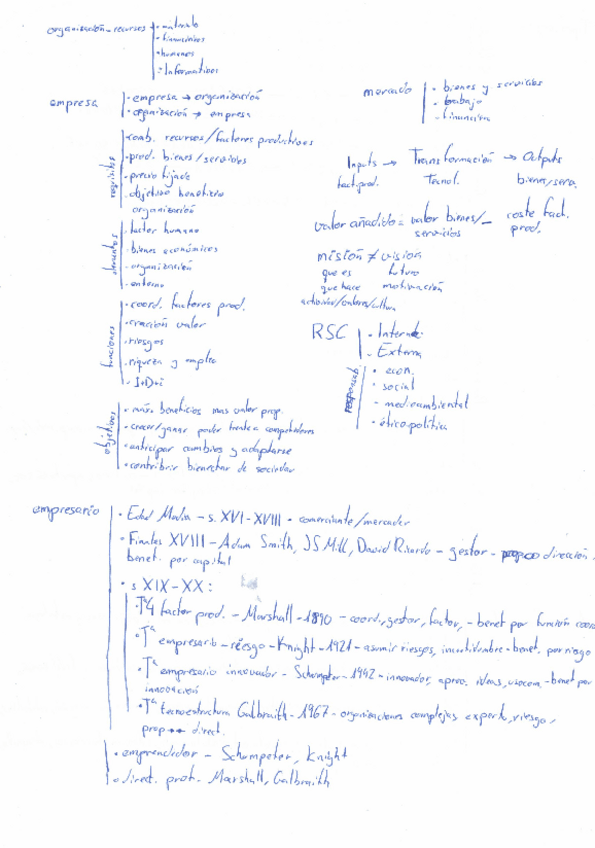 organización - recursos
· materiales
· financieros
· humanos
· Informativos
empresa
· empresa → organización
· organización → empresa
requisitos
· comb. recursos/factores productivos
· prod. bienes/servicios
· precio fijado
· objetivo beneficio
organización
elementos
· factor humano
· bienes económicos
· organización
· entorno
funciones
· coord. factores prod.
· creación valor
· riesgos
· riqueza y empleo
· I+D+i
objetivos
· máx. beneficios mas valor prop.
· crecer/ganar poder frente a competidores
· anticipar cambios y adaptarse
· contribrir bienestar de sociedad
mercado
· bienes y servicios
· trabajo
· financiera
Inputs → Transformación → Outputs
fact.prod. Tecnol. bienes/serv.
valor añadido = valor bienes/ - coste fact.
servicios prod.
misión ≠ visión
que es futuro
que hace motivación
RSC
- Interna
- Externa
responsab.
· econ.
· social
- medioambiental
· ético-política
empresario
· Edad Media - s. XVI - XVIII · comerciante/mercader
· Finales XVIII - Adam Smith, JS Mill, David Ricardo - gestor - dirección,
benef. por capital
· s XIX - XX:
· Tª 4 factor prod. - Marshall - 1890 - coord., gestor, factor, - benef por función coord
· Tª empresario - riesgo - Knight - 1921 - asumir riesgos, incertidumbre - benef. por riesgo
· Tª empresario innovador - Schumpeter - 1942 - innovador, aprov. ideas, - benef por
innovación
· Tª tecnoestructura Galbraith - 1967 - organizaciones complejas experto, riesgo,
prop ↔ direct.
· emprendedor - Schumpeter, Knight
· direct. prof. Marshall, Galbraith